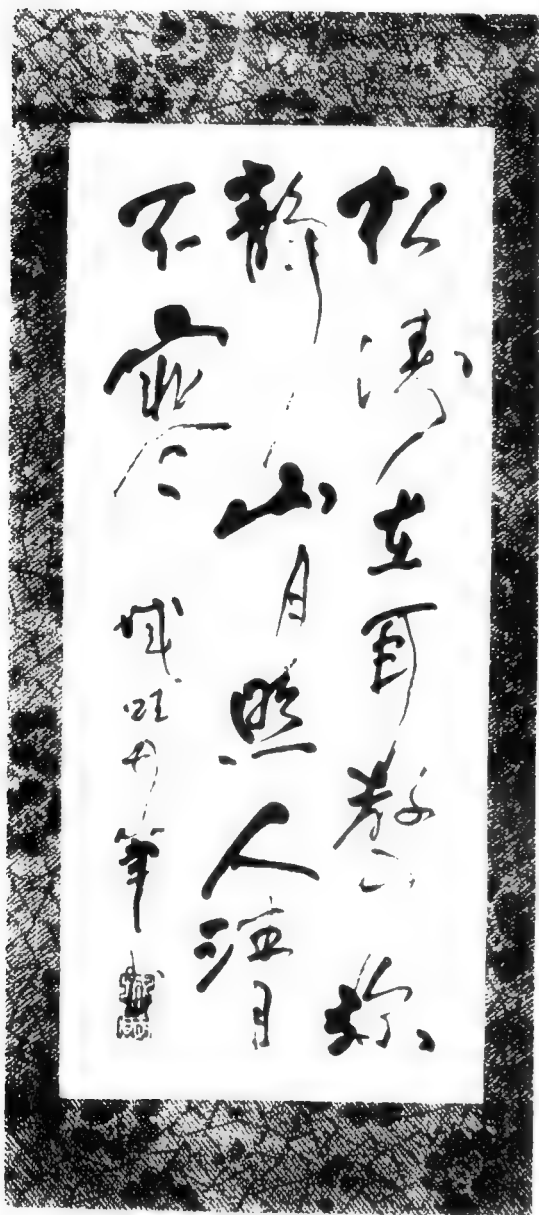 松涛在耳声弥
静山月照人清
不寒